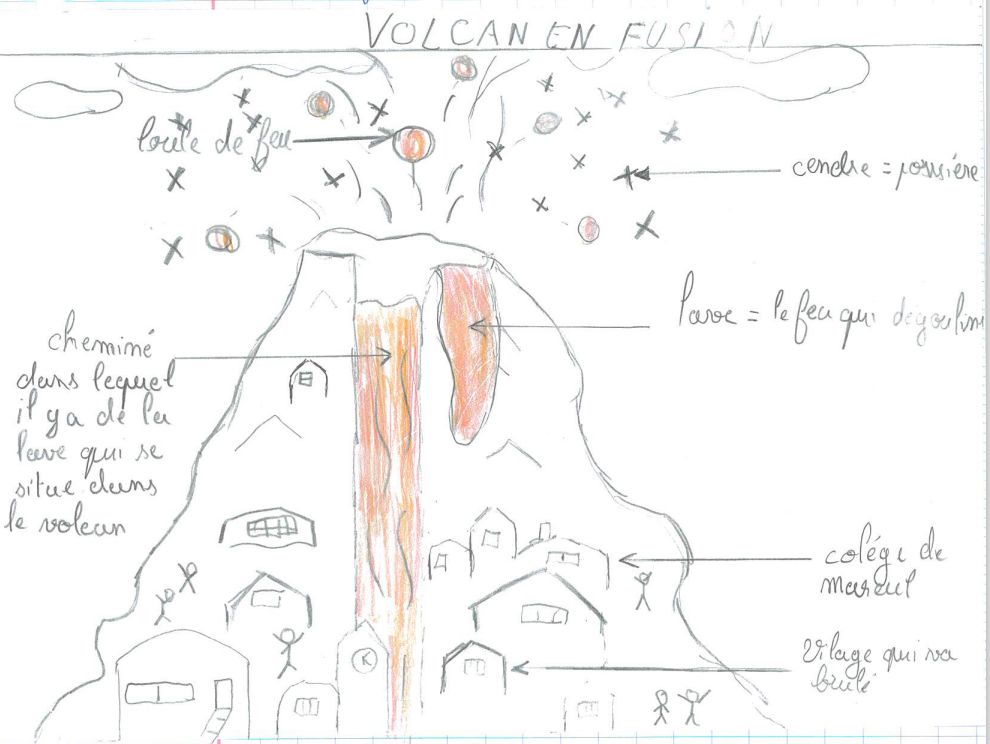 VOLCAN EN FUSION
boule de feu
cendre = possière
lave = le feu qui dégoulin
cheminé
dans lequel
il y a de la
lave qui se
situe dans
le volcan
colége de
mareuil
vilage qui va
brulé
K